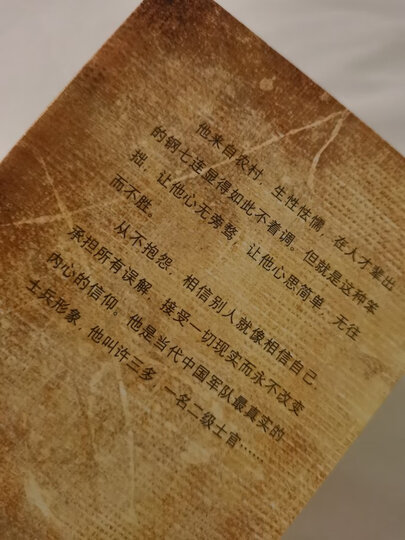 他来自农村，生性怯懦，在人才辈出
的钢七连显得如此不着调。但就是这种笨
拙，让他心无旁骛，让他心思简单，无往
而不胜。
从不抱怨，相信别人就像相信自己，
承担所有误解，接受一切现实而永不改变
内心的信仰。他是当代中国军队最真实的
士兵形象，他叫许三多，一名二级士官……